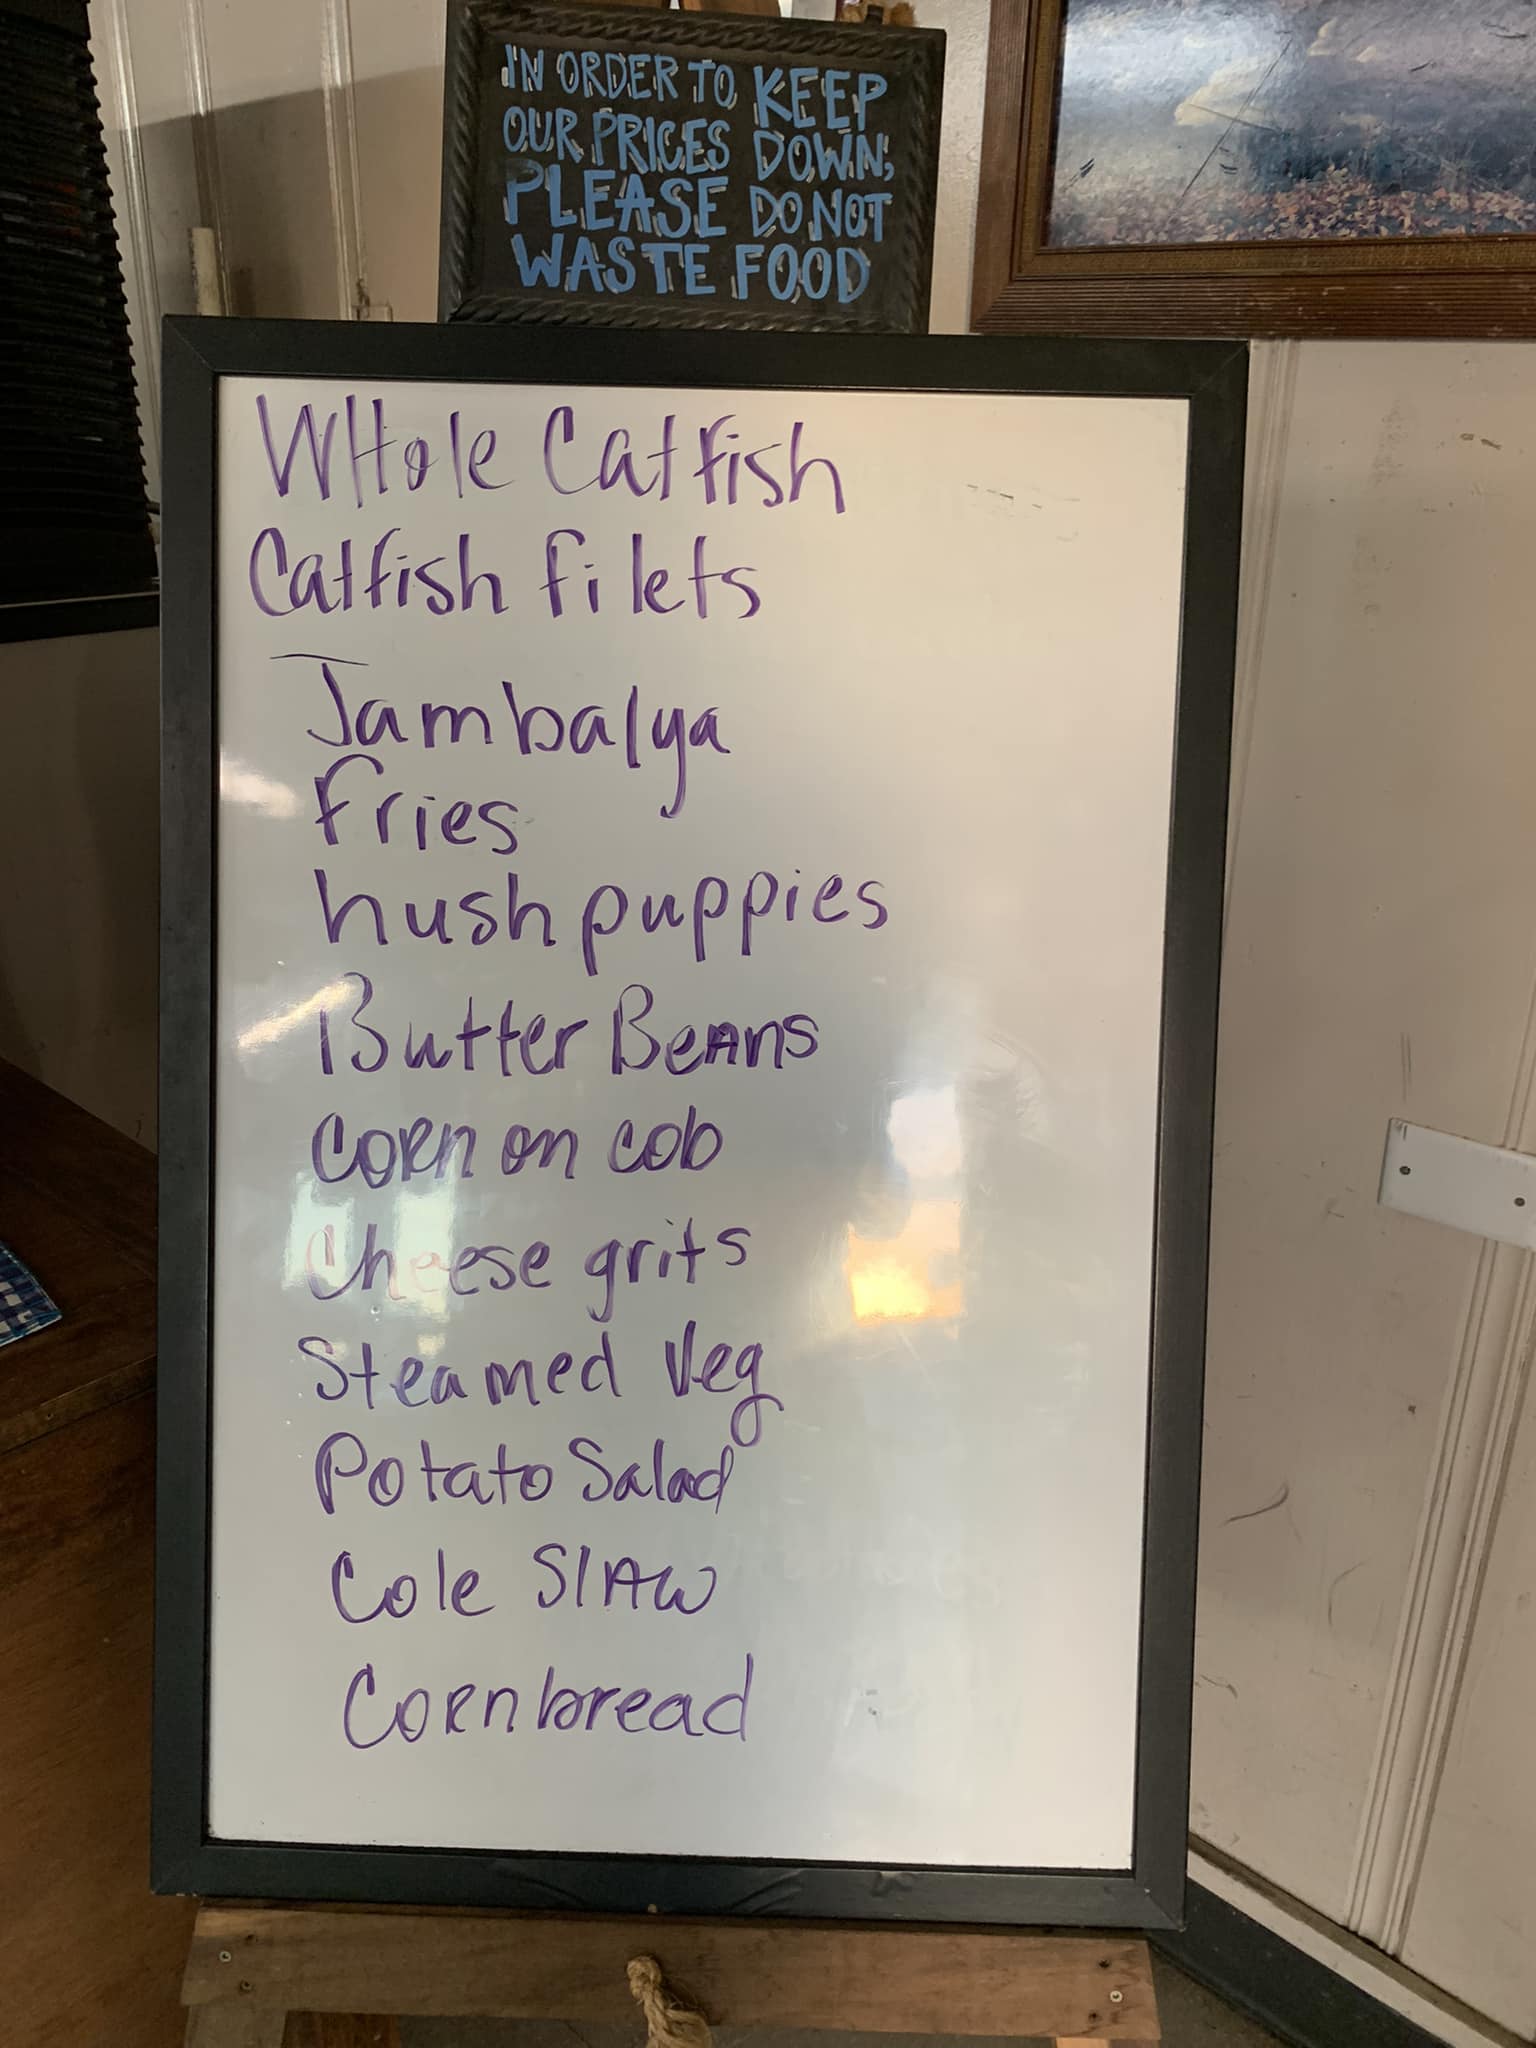 IN ORDER TO KEEP
OUR PRICES DOWN,
PLEASE DO NOT
WASTE FOOD
WHole Catfish
Catfish filets
Jambalya
Fries
hushpuppies
Butter BeAns
CoRn on cob
Cheese grits
Steamed Veg
Potato Salad
Cole SlAw
CoRnbread